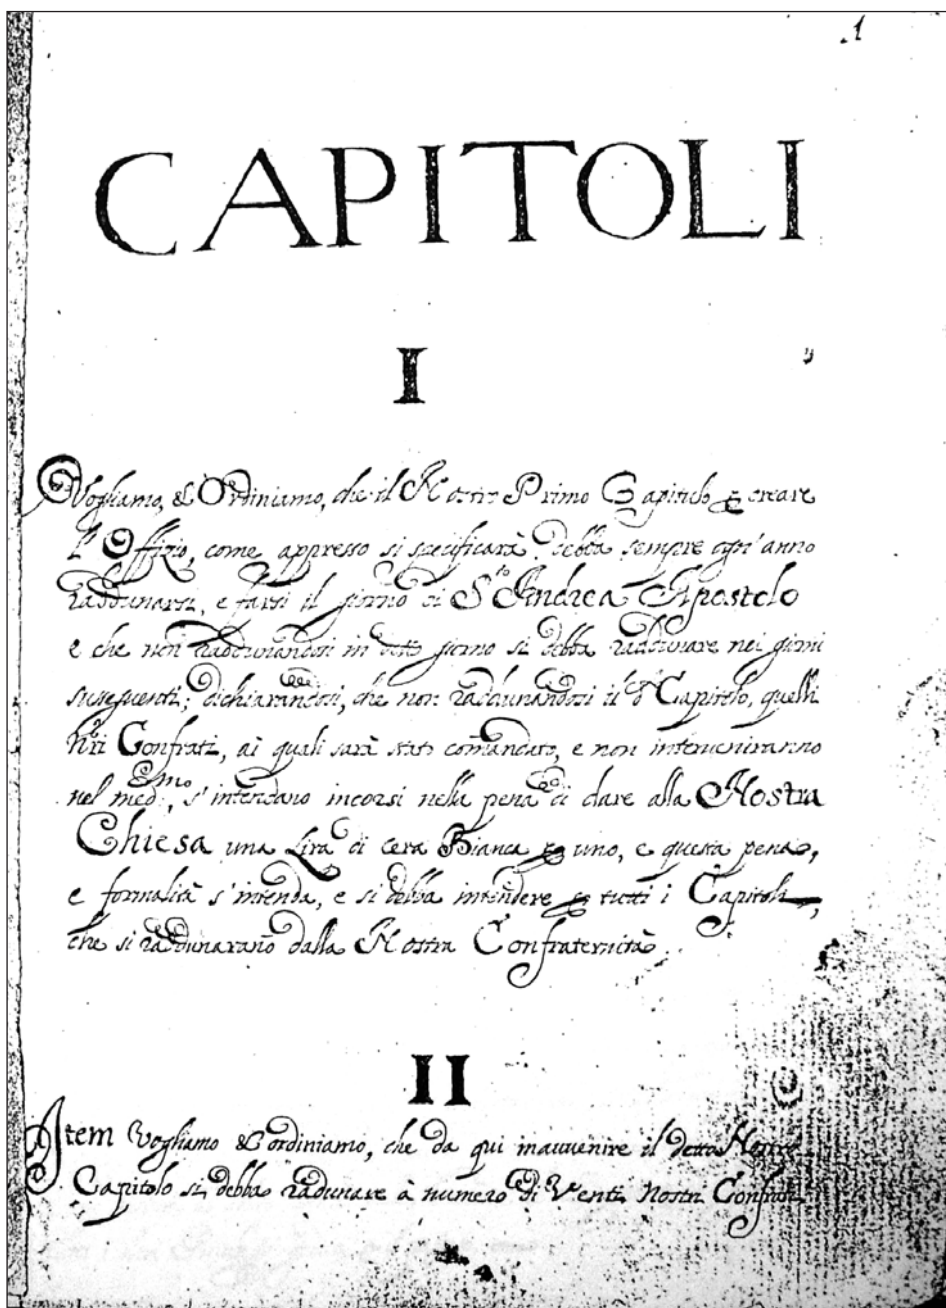 1
CAPITOLI
I
Vogliamo, & Ordiniamo, che il Nostro Primo Capitolo p creare
L'Offizio, come appresso si specificarà, debba sempre ogn'anno
raddunarsi, e farsi il giorno di S.to Andrea Apostolo
e che non raddunandosi in detto giorno si debba raddunare nei giorni
susseguenti; dichiarandosi, che non raddunandosi il d.o Capitolo, quelli
Nri Confrati, ai quali sarà stato comandato, e non interveniranno
nel med.mo, s'intendano incorsi nella pena di dare alla Nostra
Chiesa una Lira di cera Bianca p uno, e questa pena,
e formalità s'intenda, e si debba intendere p tutti i Capitoli,
che si raddunarano dalla Nostra Confraternità.
II
Item Vogliamo & ordiniamo, che da qui inauvenire il detto Nostro
Capitolo si debba radunare à numero di Venti Nostri Confrati